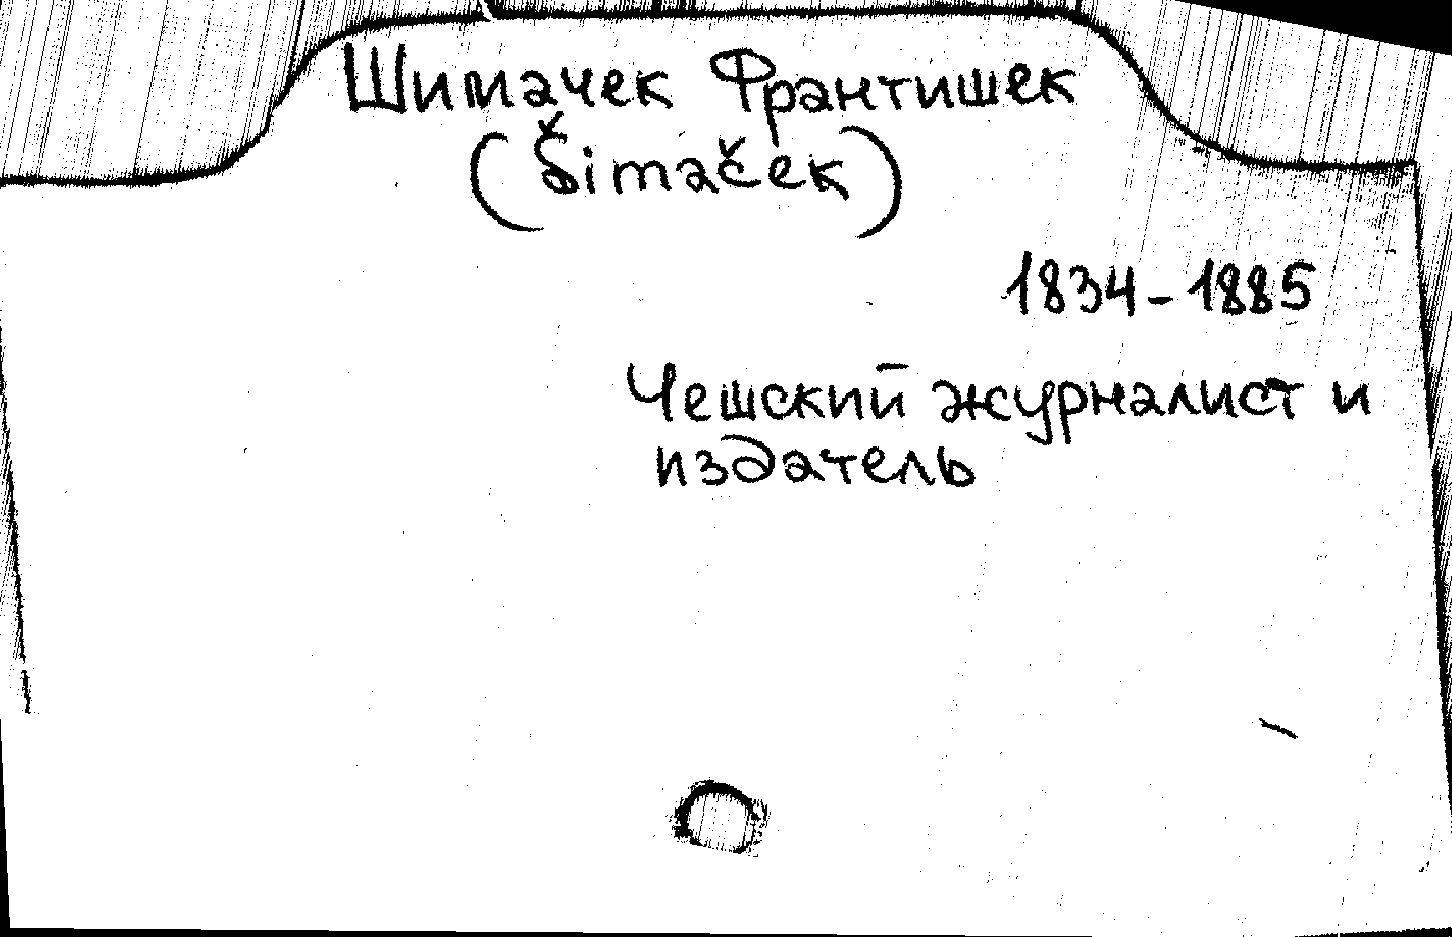 Шимачек Франтишек
(Šimaček)
1834-1885
Чешский журналист и
издатель